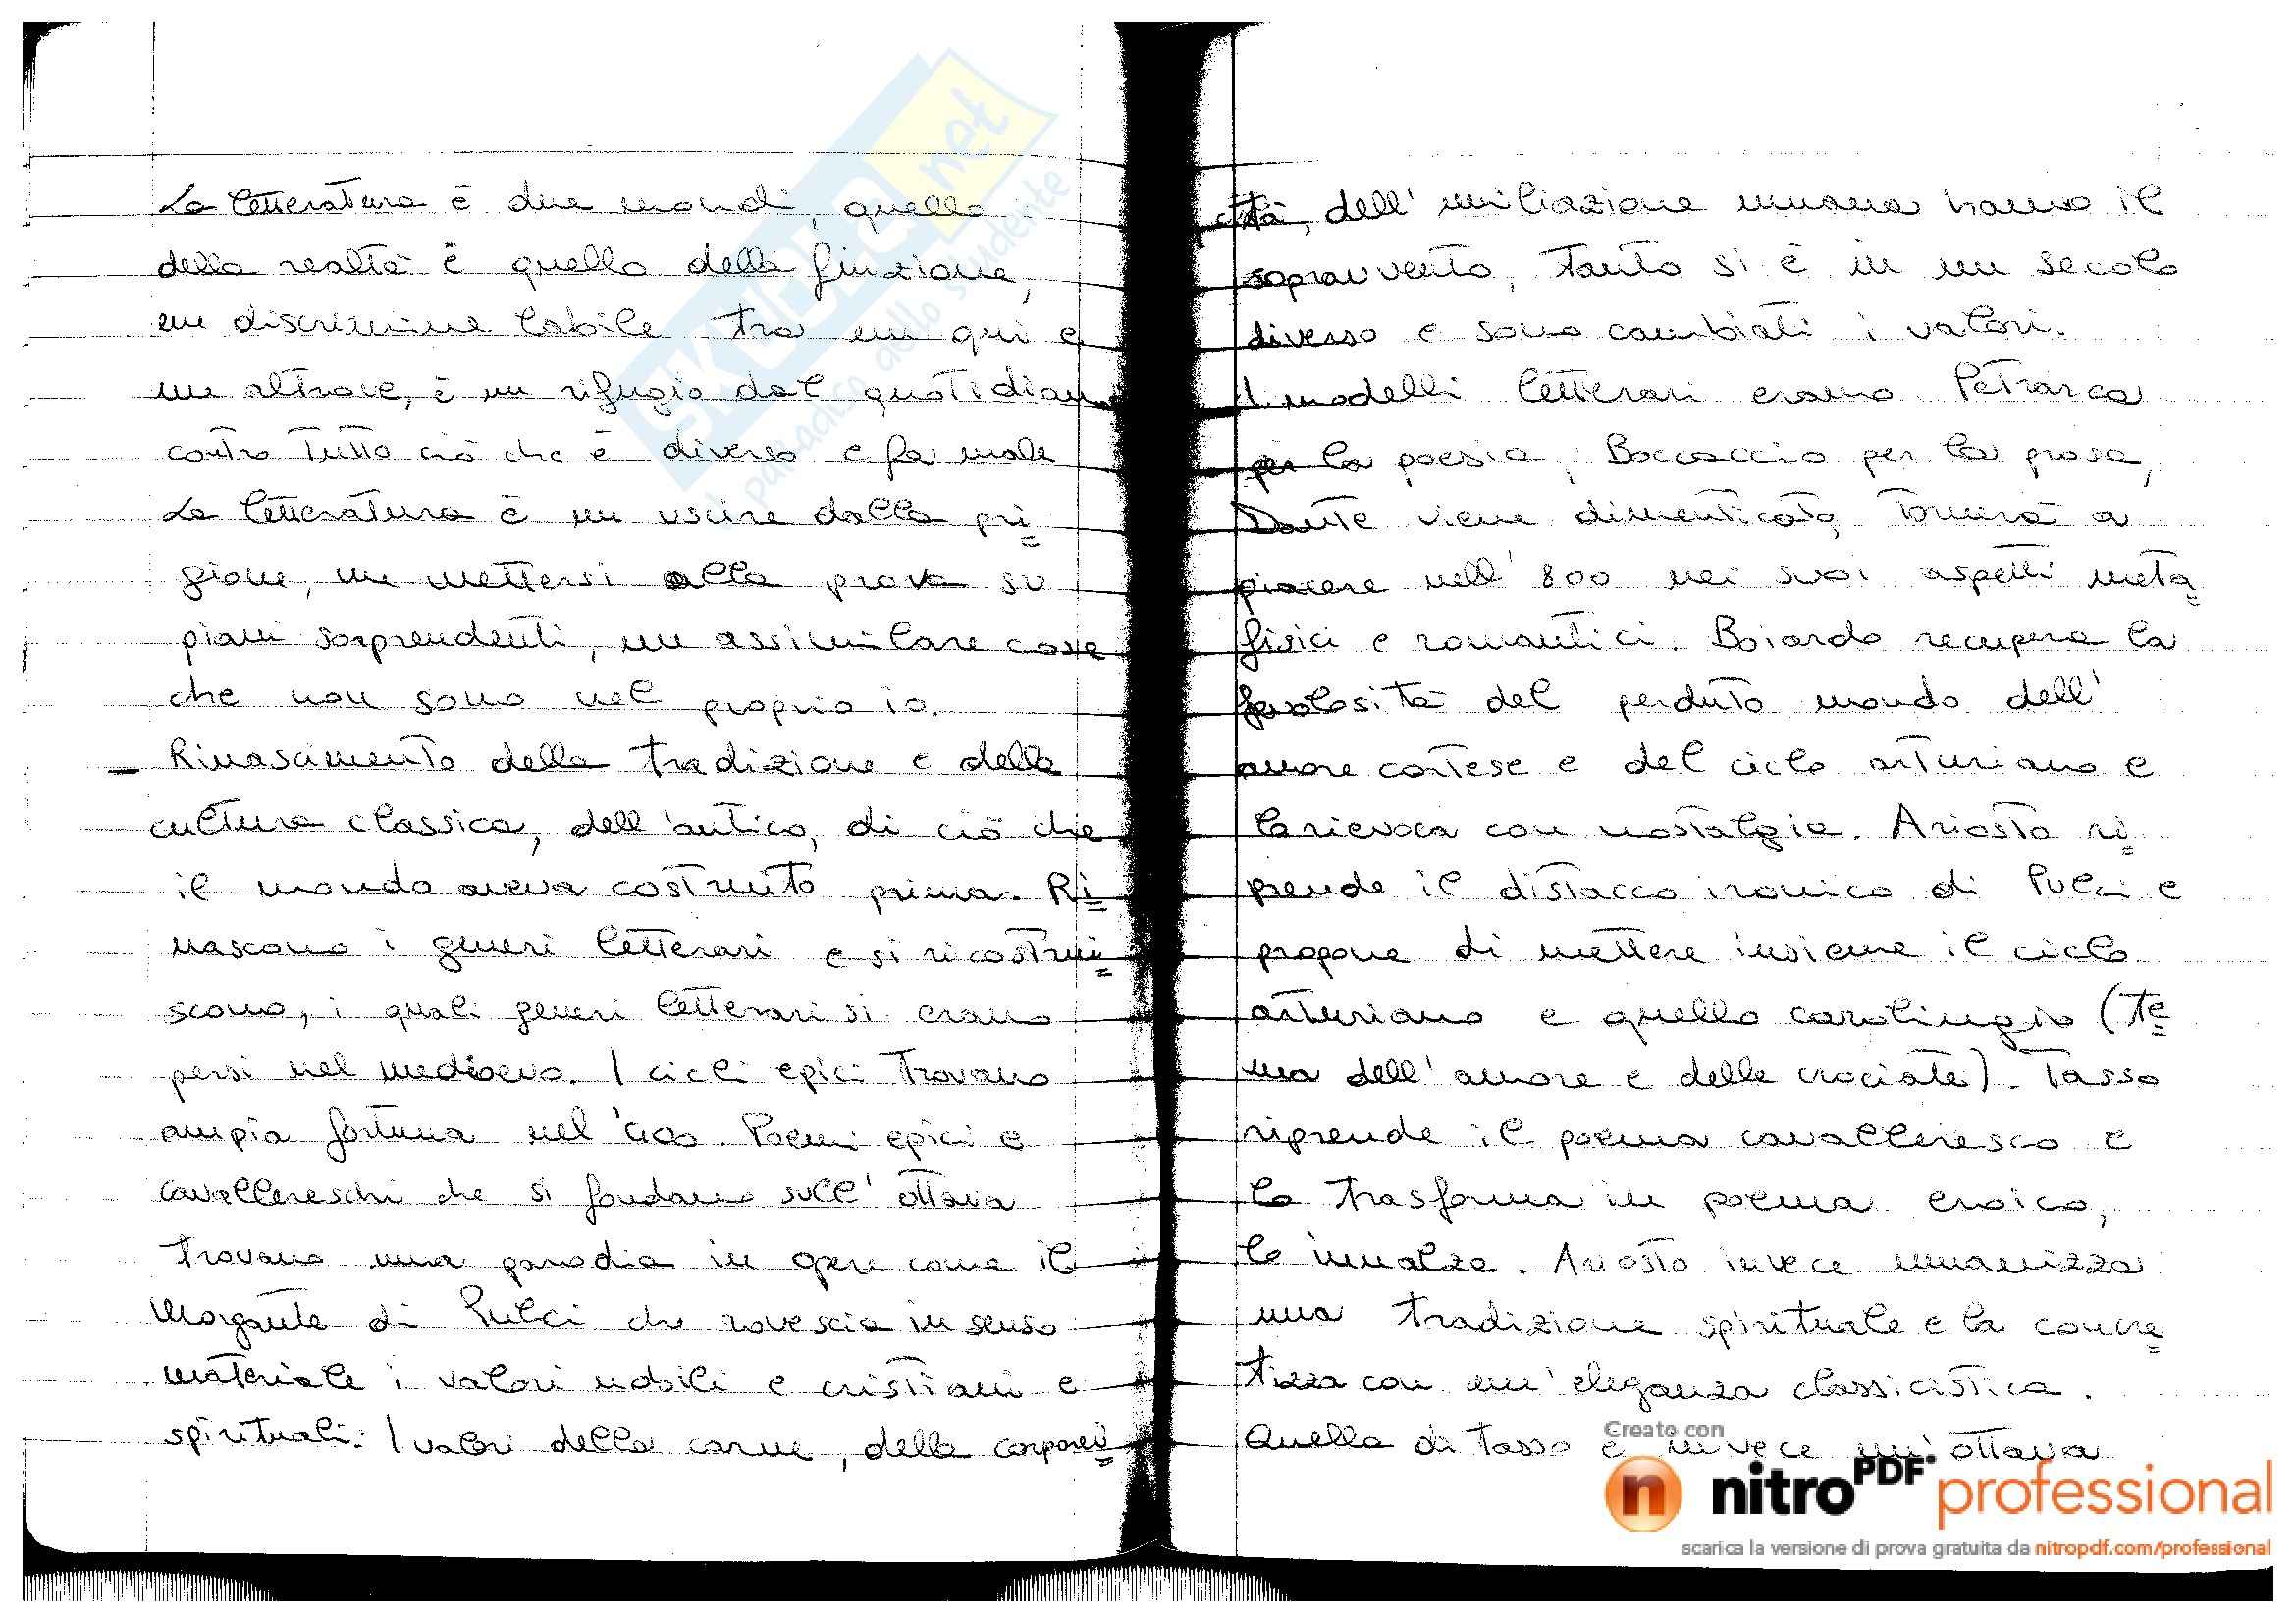 La letteratura è due mondi, quello
della realtà è quello della finzione,
un discrimine labile tra un qui e
un altrove, è un rifugio dal quotidiano
contro tutto ciò che è diverso e fa male
La letteratura è un uscire dalla pri=
gione, un mettersi alla prova su
piani sorprendenti, un assimilare cose
che non sono nel proprio io.
– Rinascimento della tradizione e della
cultura classica, dell'antico, di ciò che
il mondo aveva costruito prima. Ri=
nascono i generi letterari e si ricostrui=
scono, i quali generi letterari si erano
persi nel medioevo. I cicli epici trovano
ampia fortuna nel '400. Poemi epici e
cavallereschi che si fondano sull'ottava
trovano una parodia in opere come il
Morgante di Pulci che rovescia in senso
materiale i valori nobili e cristiani e
spirituali. I valori della carne, della corporei=
cità, dell'umiliazione umana hanno il
sopravvento, tanto si è in un secolo
diverso e sono cambiati i valori.
I modelli letterari erano Petrarca
per la poesia, Boccaccio per la prosa,
Dante viene dimenticato, tornerà a
piacere nell'800 nei suoi aspetti meta=
fisici e romantici. Boiardo recupera la
favolosità del perduto mondo dell'
amore cortese e del ciclo arturiano e
la rievoca con nostalgia. Ariosto ri=
prende il distacco ironico di Pulci e
propone di mettere insieme il ciclo
arturiano e quello carolingio (te=
ma dell'amore e delle crociate). Tasso
riprende il poema cavalleresco e
lo trasforma in poema eroico,
lo innalza. Ariosto invece umanizza
una tradizione spirituale e la concre=
tizza con un'eleganza classicistica.
Quella di Tasso è invece un'ottava
SKUOLA.net
il paradiso dello studente
Creato con
nitroPDF professional
scarica la versione di prova gratuita da nitropdf.com/professional